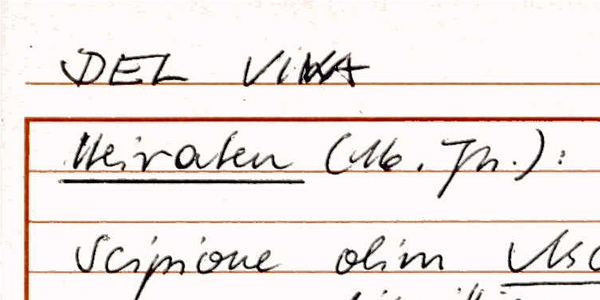 DEL VINA
Heiraten (16. Jh.):
Scipione olim